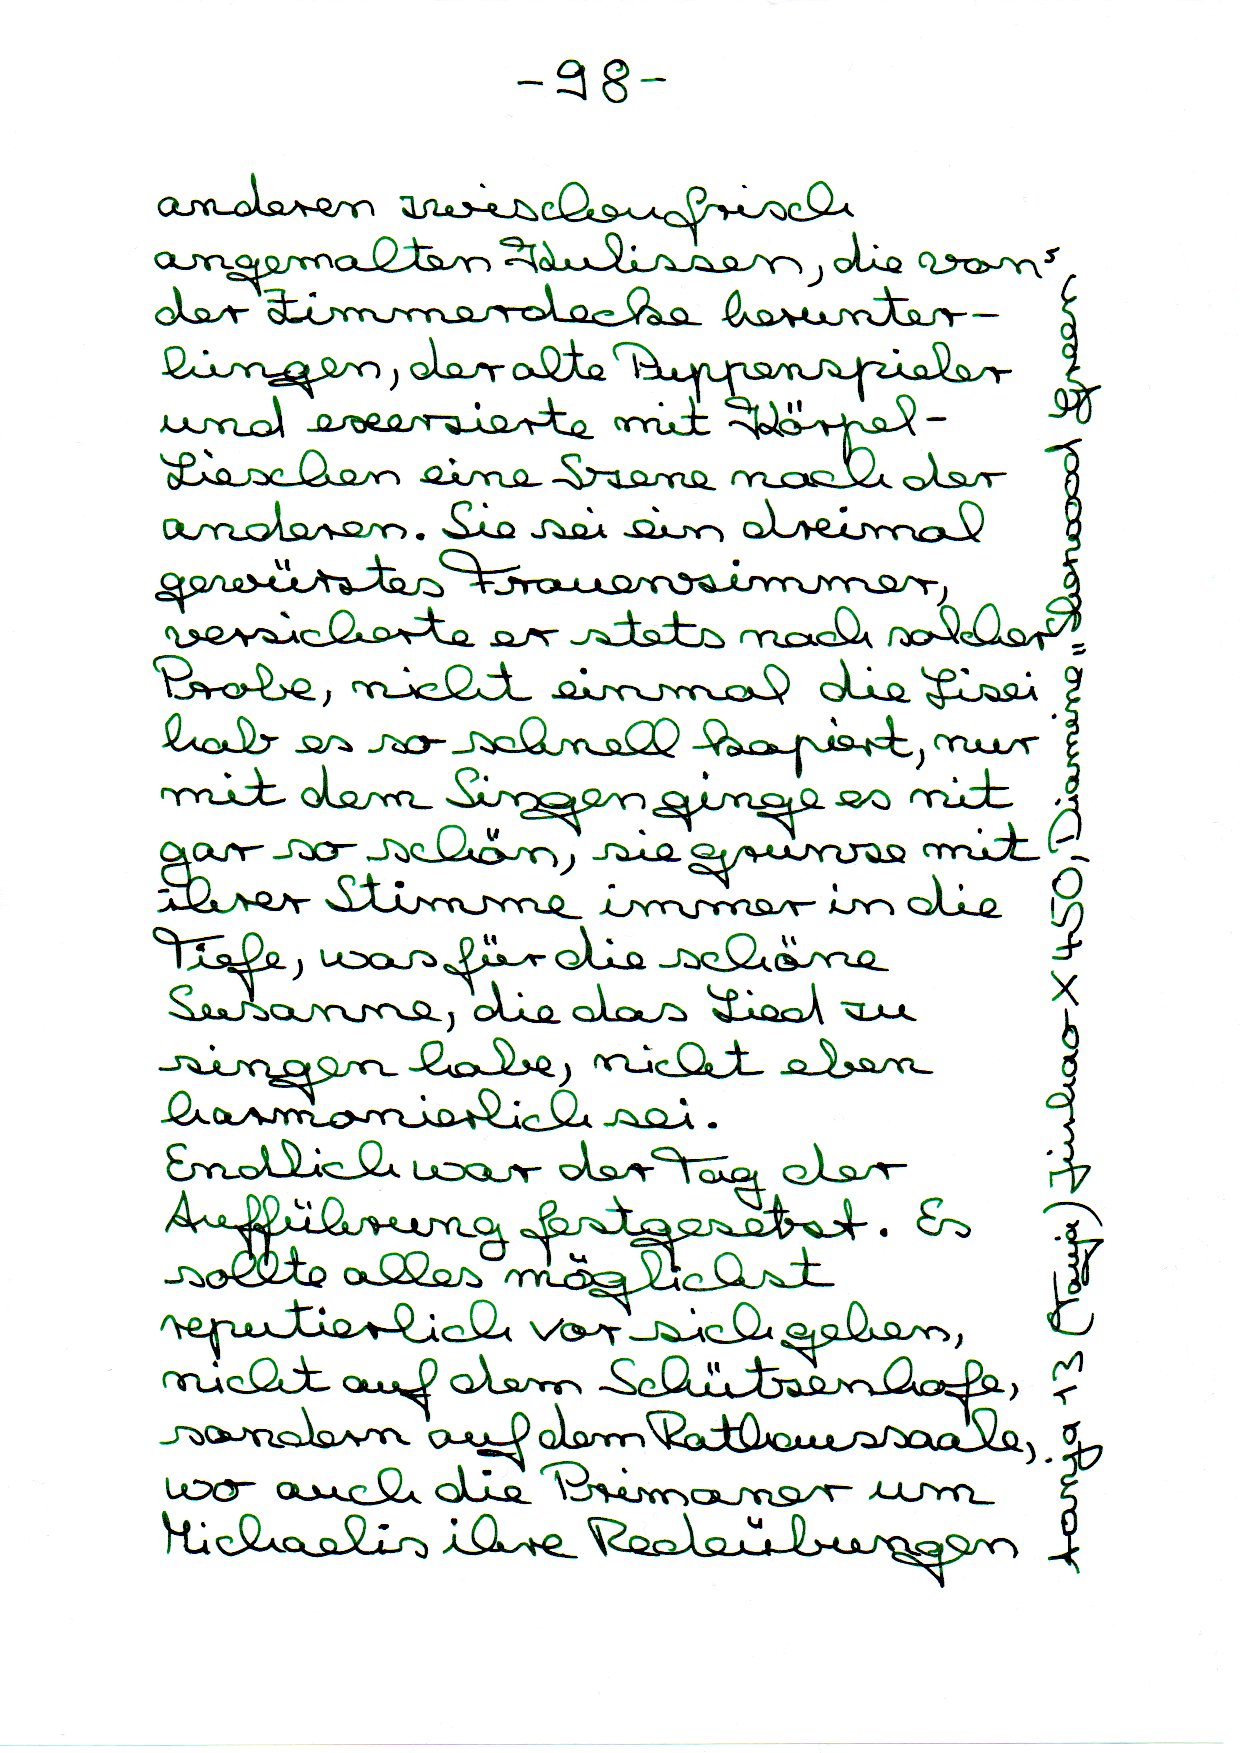 -98-
anderen zwischen frisch
angemalten Kulissen, die von
der Zimmerdecke herunter-
hingen, der alte Puppenspieler
und exersierte mit Körpel-
Lieschen eine Szene nach der
anderen. Sie sei ein dreimal
gewürztes Frauenzimmer,
versicherte er stets nach solcher
Probe, nicht einmal die Lisei
hab es so schnell kapiert, nur
mit dem Singen ginge es nit
gar so schön, sie grunze mit
ihrer Stimme immer in die
Tiefe, was für die schöne
Susanne, die das Lied zu
singen habe, nicht eben
harmonierlich sei.
Endlich war der Tag der
Aufführung festgesetzt. Es
sollte alles möglichst
reputierlich vor sich gehen,
nicht auf dem Schützenhofe,
sondern auf dem Rathaussaale,
wo auch die Primaner um
Michaelis ihre Redeübungen
tanja 13 (Tanja) Jinhao X 450, Diamine "Sherwood Green"